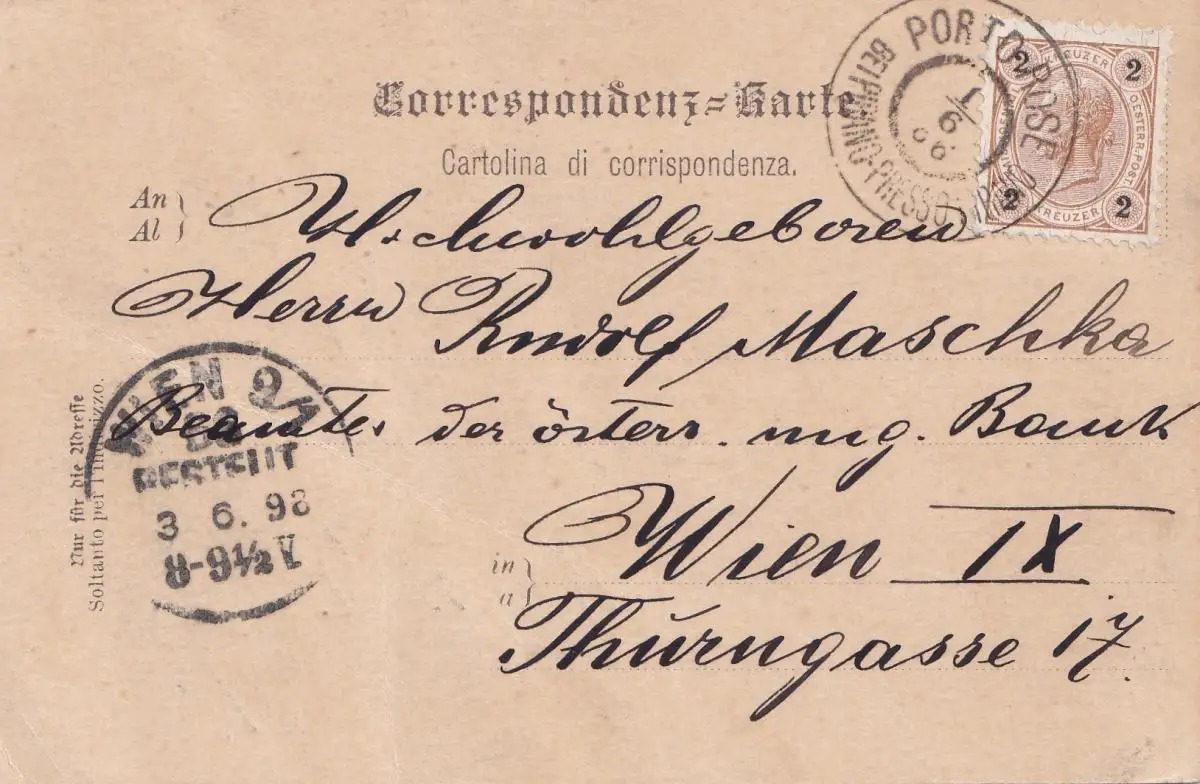 PORTO ROSE
BEI PIRANO-PRESSO PIRANO
1/6
98
2 KREUZER 2
OESTERR.POST
2 KREUZER 2
Correspondenz=Karte
Cartolina di corrispondenza.
An
Al
Hochwohlgeboren
Herrn Rudolf Maschka
Beamter der österr. ung. Bank
in
a
Wien IX
Thurngasse 17.
WIEN 9/1
BESTELLT
3 6. 98
8-9½ V
Nur für die Adresse
Soltanto per l'indirizzo.